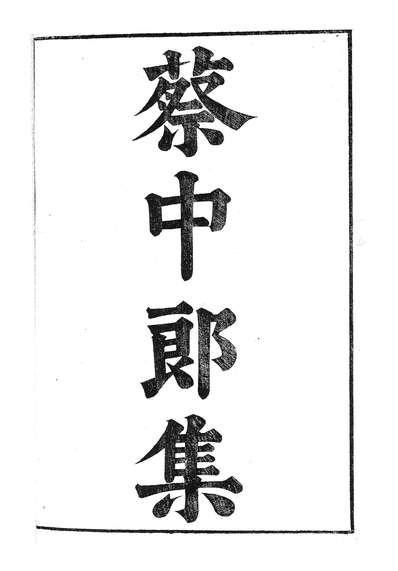 蔡中郎集